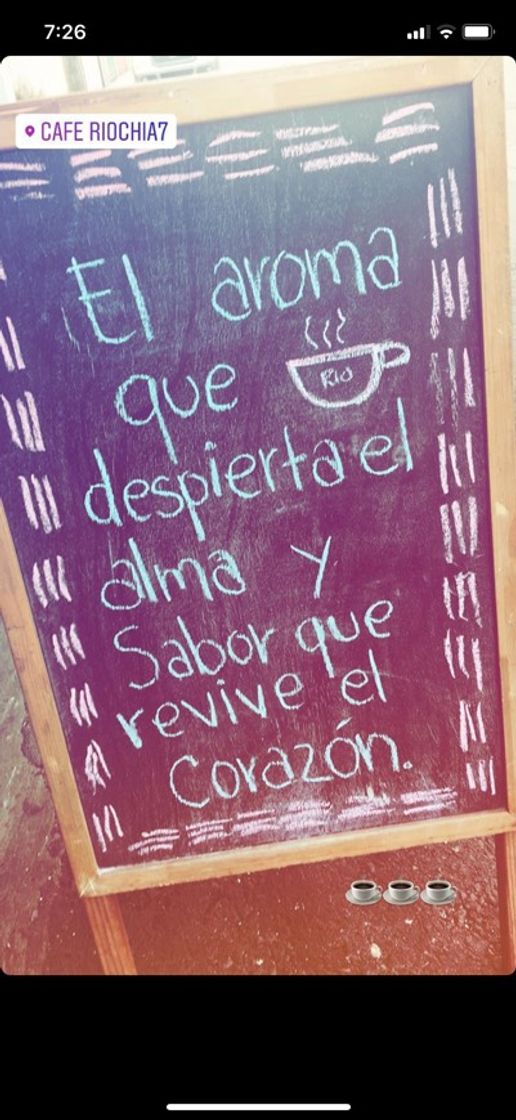 7:26
CAFE RIOCHIA7
El aroma
que
RIO
despierta el
alma y
Sabor que
revive el
Corazón.